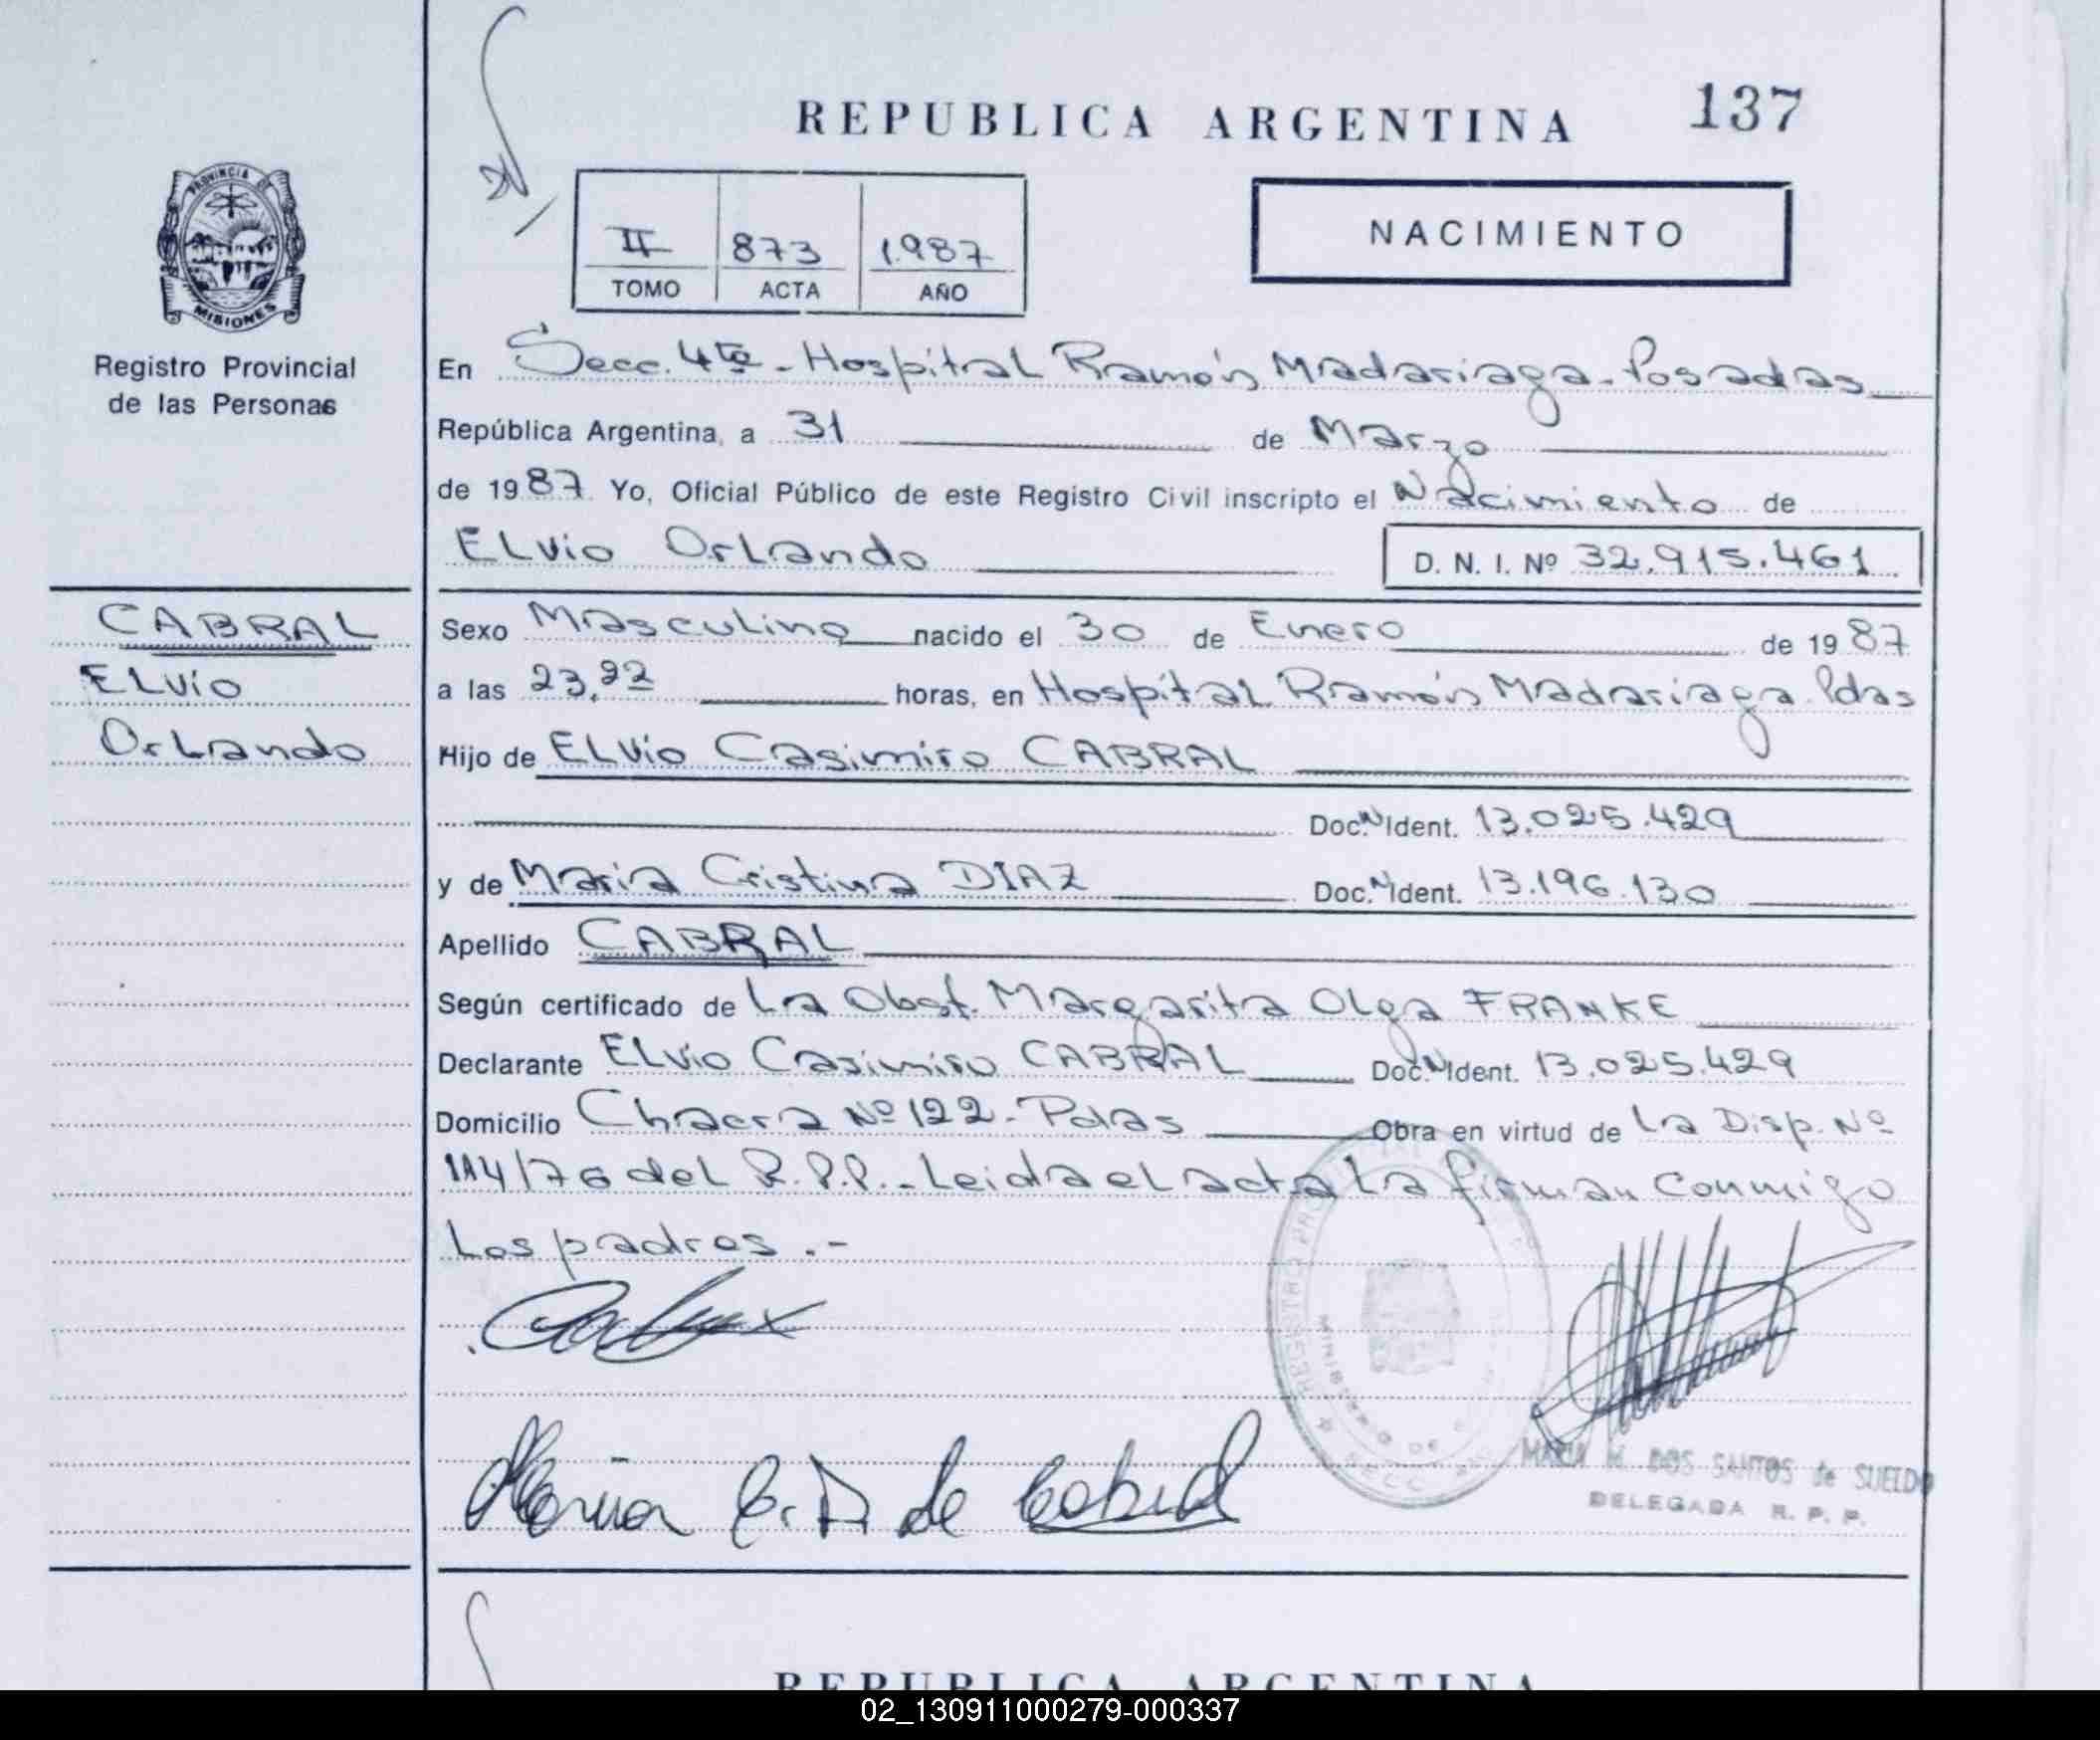 REPUBLICA ARGENTINA 137
PROVINCIA DE
MISIONES
Registro Provincial
de las Personas
II 873 1987
TOMO ACTA AÑO
NACIMIENTO
En Secc. 4ta - Hospital Ramón Madariaga - Posadas
República Argentina, a 31 de Marzo
de 1987 Yo, Oficial Público de este Registro Civil inscripto el Nacimiento de
ELvio OrLando D. N. I. Nº 32.915.461
CABRAL
ELvio
OrLando
Sexo Masculino nacido el 30 de Enero de 1987
a las 23,22 horas, en Hospital Ramón Madariaga Pdas
Hijo de ELvio Casimiro CABRAL
Doc. N Ident. 13.025.429
y de Maria Cristina DIAZ Doc. N Ident. 13.196.130
Apellido CABRAL
Según certificado de La Obst. Margarita Olga FRANKE
Declarante ELvio Casimiro CABRAL Doc. N Ident. 13.025.429
Domicilio Chacra Nº 122 - Pdas Obra en virtud de La Disp. Nº
114/76 del R.P.P. - Leida el acta La firman conmigo
Los padres .-
REGISTRO
MINISTERIO DE
SECC
María C. D de Cabral
MARIA M. DOS SANTOS de SUELDO
DELEGADA R. P. P.
REPUBLICA ARGENTINA
02_130911000279-000337